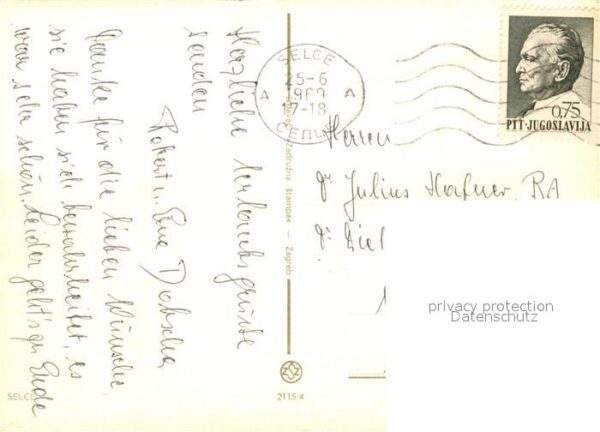 Herzliche Urlaubsgrüße
senden
Robert u. Eva
Danke für die lieben Wünsche,
sie haben sich bewahrheitet, es
war sehr schön. Leider geht's zu Ende
SELCE
25-6
1969
17-18
A A
СЕЛЦЕ
0,75
PTT-JUGOSLAVIJA
Herren
Dr Julius Hafner, RA
Dr.
zadružna štampa« — Zagreb
SELCE
2115/4
privacy protection
Datenschutz